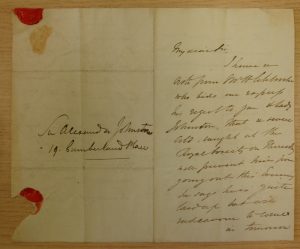 Sir Alexander Johnston
19. Cumberland Place
My dear Sir,
I have a
note from Mr
who bids me express
his regret to you & Lady
Johnston, that a severe
cold caught at the
Royal Society on Thursday
will prevent him from
going out this Evening
he says he is quite
laid up but will
endeavour to come
tomorrow